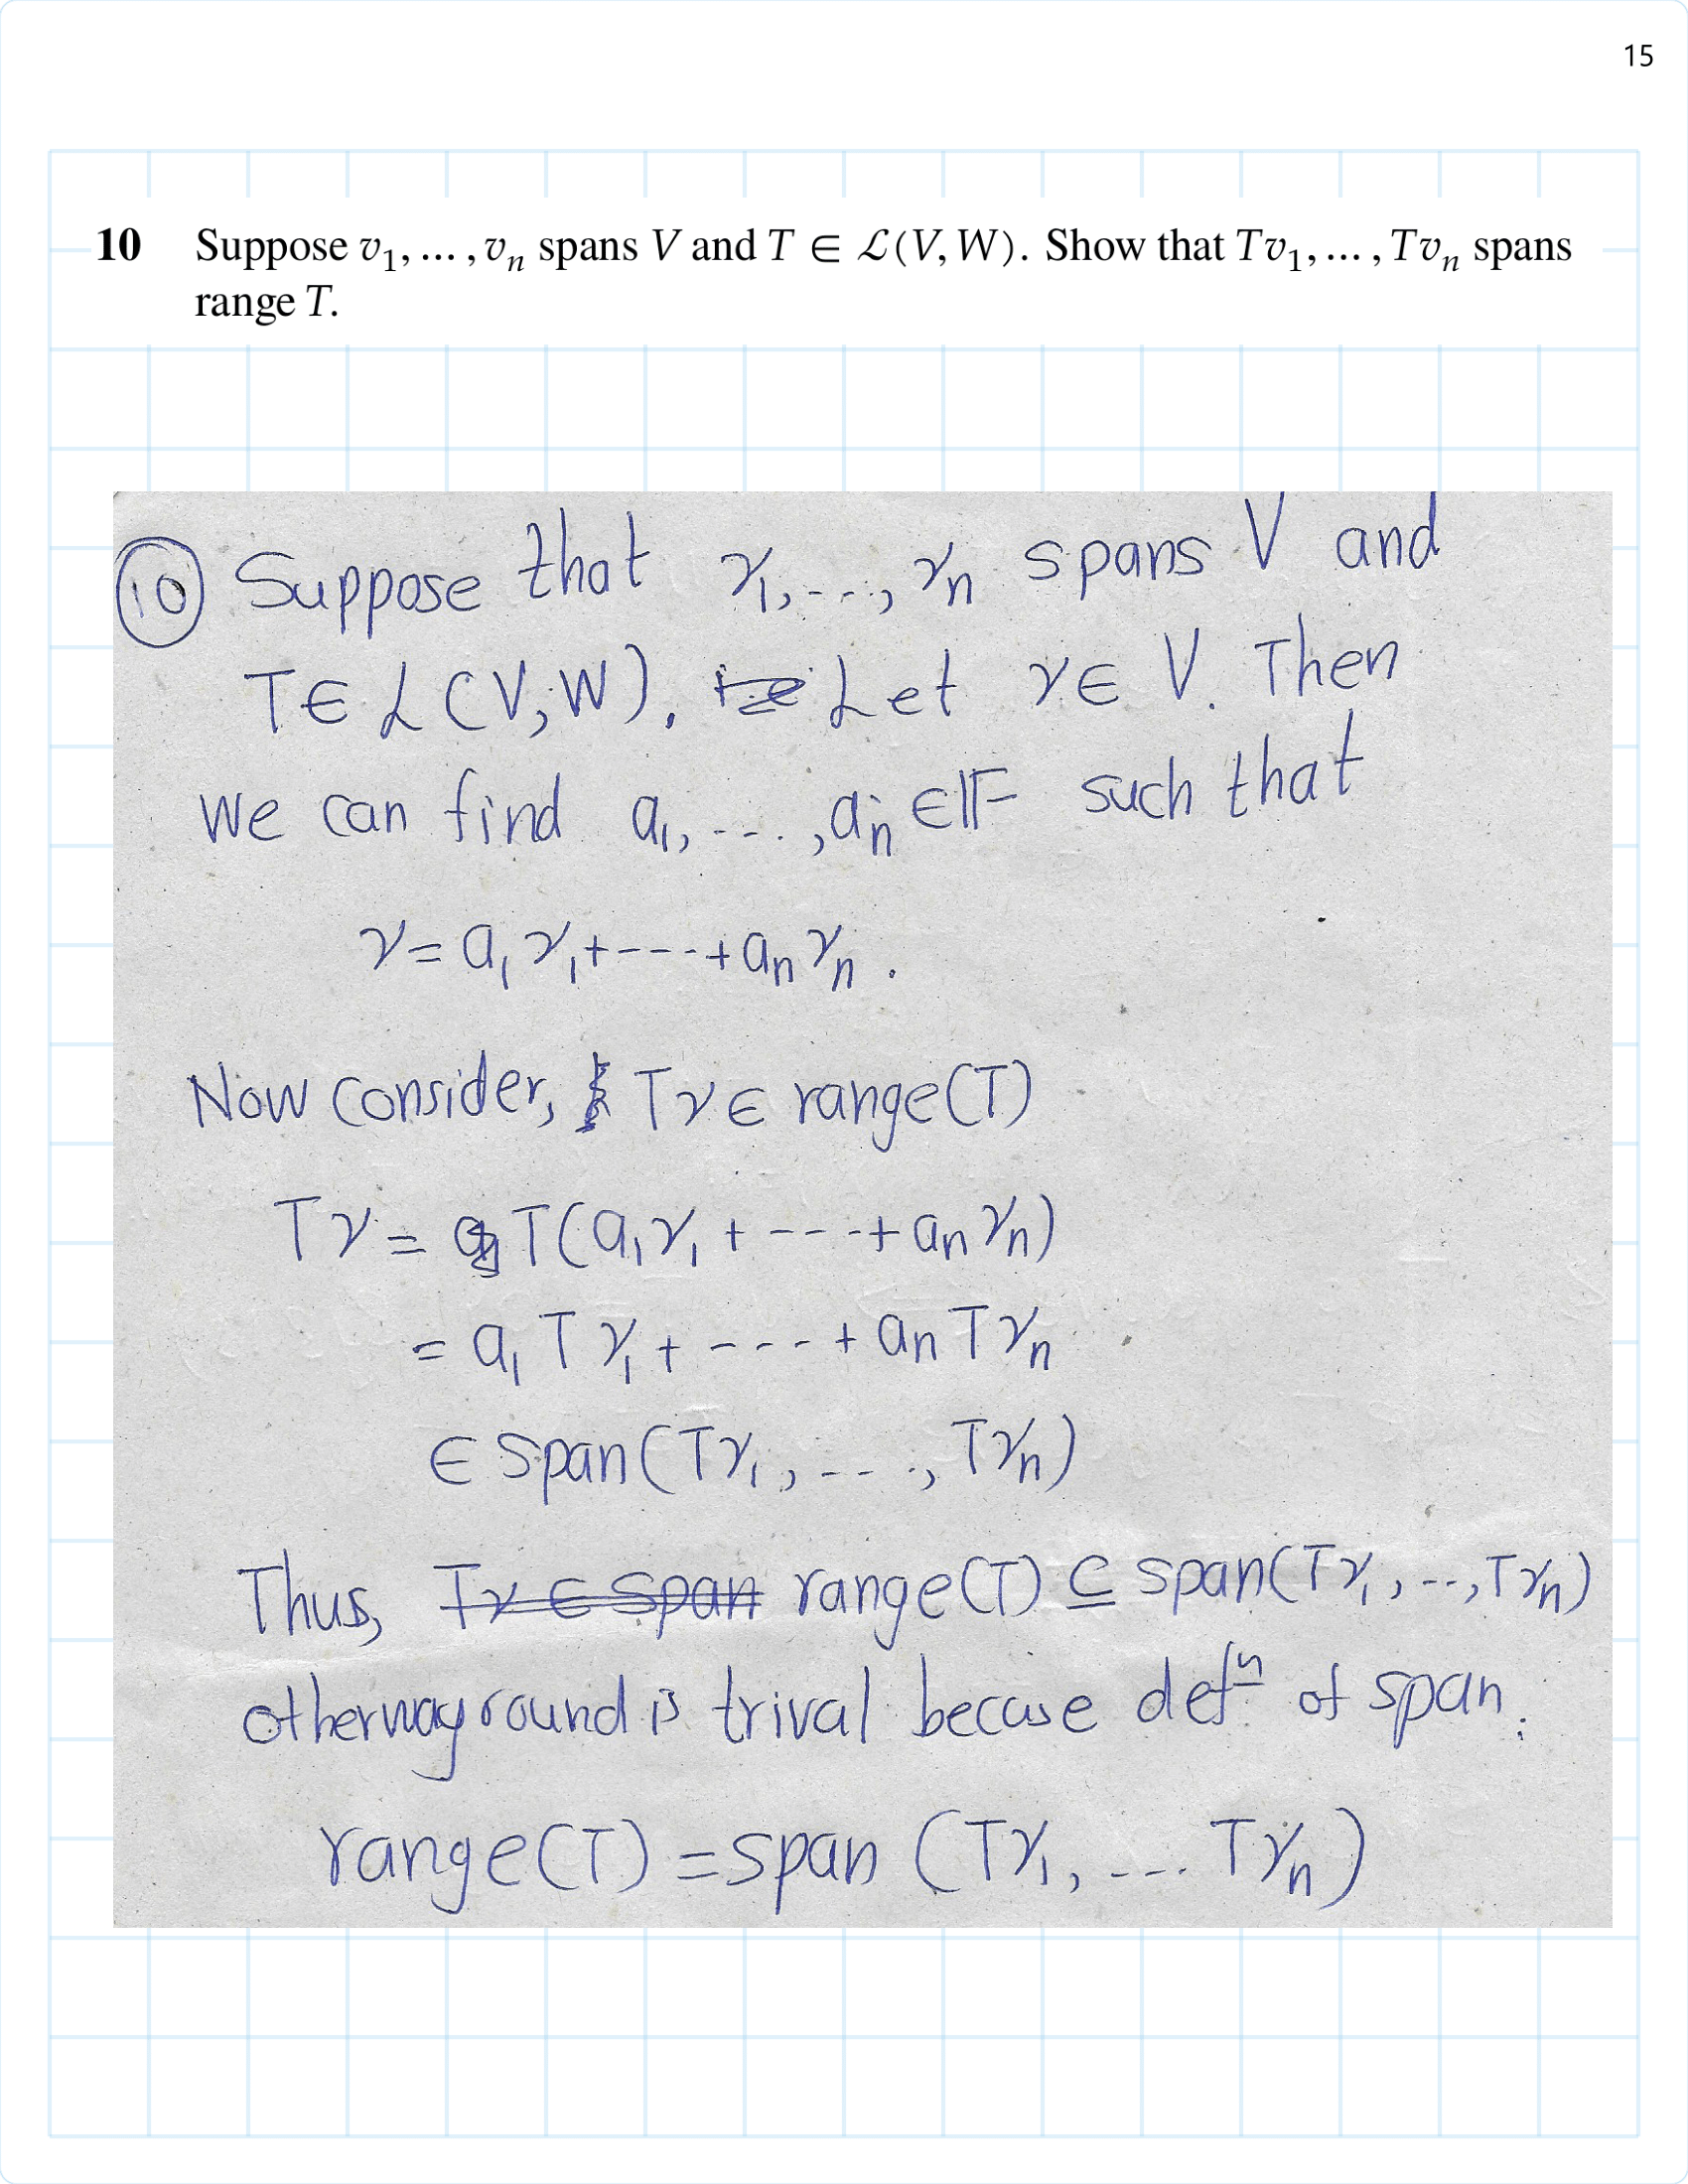 15
10 Suppose v₁, … , vₙ spans V and T ∈ ℒ(V, W). Show that Tv₁, … , Tvₙ spans
range T.
⑩ Suppose that v₁, ..., vₙ spans V and
T ∈ ℒ(V, W). Let v ∈ V. Then
we can find a₁, ..., aₙ ∈ 𝔽 such that
v = a₁v₁ + --- + aₙvₙ.
Now consider, Tv ∈ range(T)
Tv = T(a₁v₁ + --- + aₙvₙ)
= a₁Tv₁ + ---- + aₙTvₙ
∈ span(Tv₁, ..., Tvₙ)
Thus, T̶v̶ ̶∈̶ ̶s̶p̶a̶n̶ range(T) ⊆ span(Tv₁, .., Tvₙ)
otherway round is trival becuse defⁿ of span.
range(T) = span (Tv₁, ... Tvₙ)